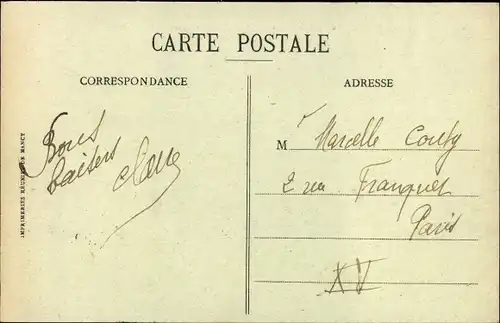 CARTE POSTALE
CORRESPONDANCE
ADRESSE
IMPRIMERIES RÉUNIES DE NANCY
Bons
baisers
M Marcelle Couty
2 rue Franquet
Paris
XV